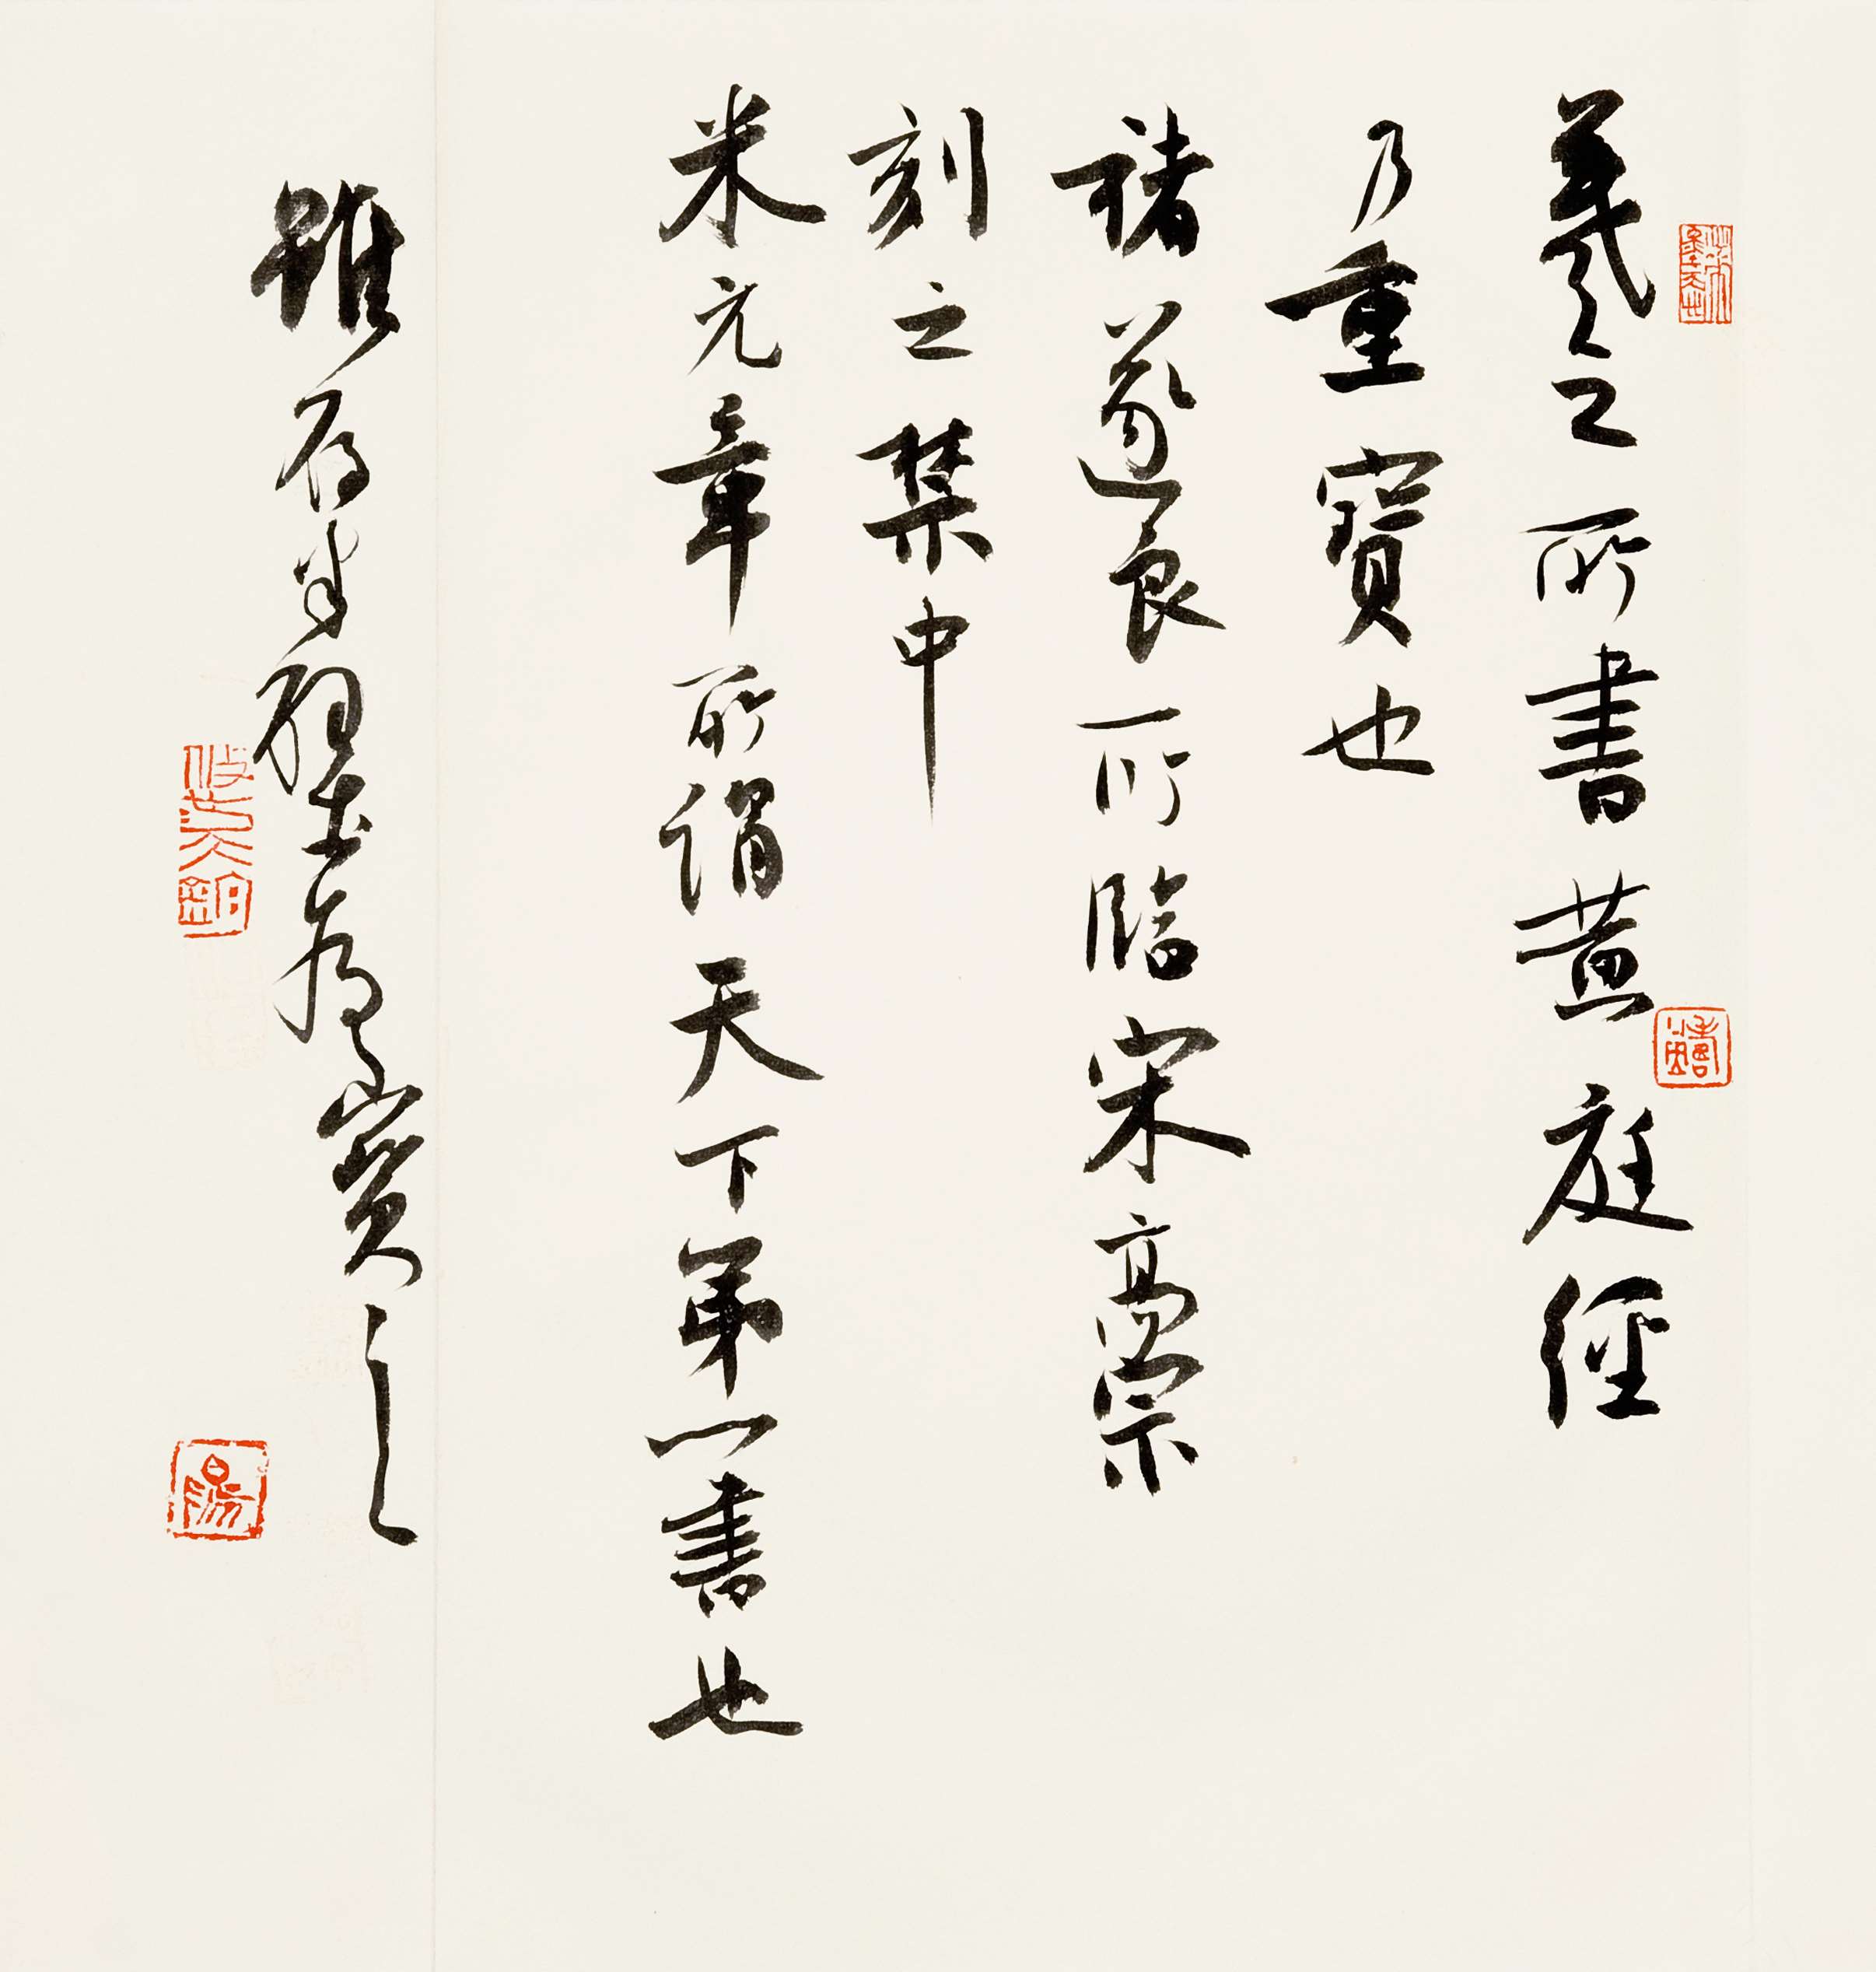 羲之所書黃庭經
乃重寶也
褚遂良所臨宋高宗
刻之禁中
米元章所謂天下第一書也
雖存半璧亦為寶之